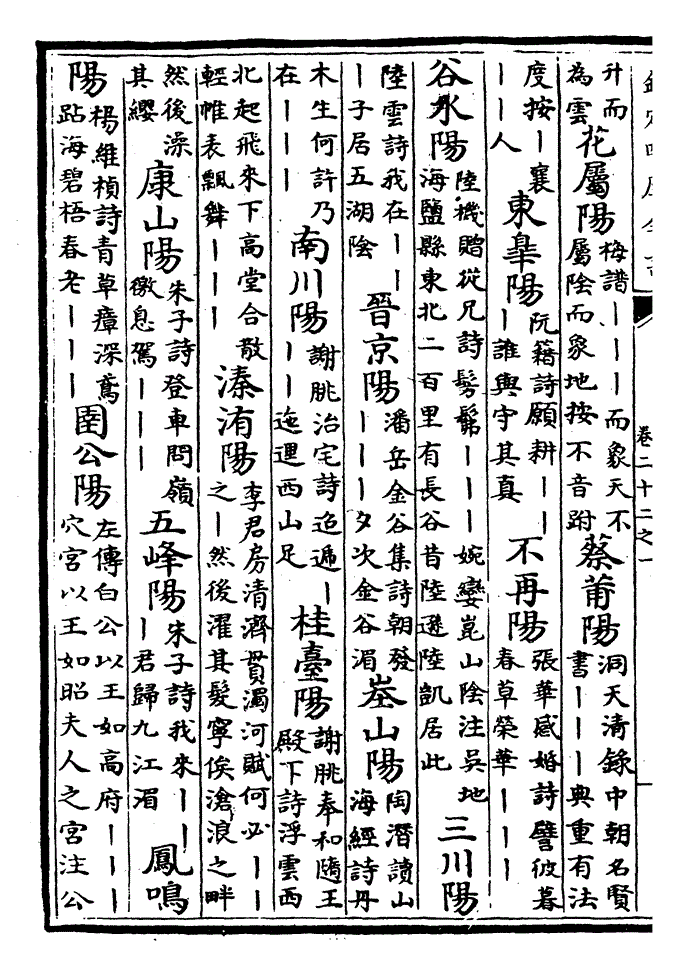 欽定四庫全書 卷二十二之一
升而為雲 花屬陽 梅譜｜｜｜而象天不屬陰而象地按不音跗 蔡莆陽 洞天清錄中朝名賢書｜｜｜典重有法
度按｜襄｜｜人 東臯陽 阮籍詩願耕｜｜｜誰與守其真 不再陽 張華感婚詩譬彼暮春草榮華｜｜｜
谷水陽 陸機贈從兄詩髣髴｜｜｜婉孌崑山陰注吳地海鹽縣東北二百里有長谷昔陸遜陸凱居此 三川陽
陸雲詩我在｜｜｜子居五湖陰 晉京陽 潘岳金谷集詩朝發｜｜｜夕次金谷湄 峚山陽 陶潛讀山海經詩丹
木生何許乃在｜｜｜ 南川陽 謝朓治宅詩迢遞｜｜｜迤邐西山足 桂臺陽 謝朓奉和隨王殿下詩浮雲西
北起飛來下高堂合散輕帷表飄舞｜｜｜ 溱洧陽 李君房清濟貫濁河賦何必｜｜之｜然後濯其髮寧俟滄浪之畔
然後澡其纓 康山陽 朱子詩登車問嶺徼息駕｜｜｜ 五峰陽 朱子詩我來｜｜｜君歸九江湄 鳳鳴
陽 楊維楨詩青草瘴深鳶跕海碧梧春老｜｜｜ 圉公陽 左傳白公以王如高府｜｜｜穴宮以王如昭夫人之宮注公